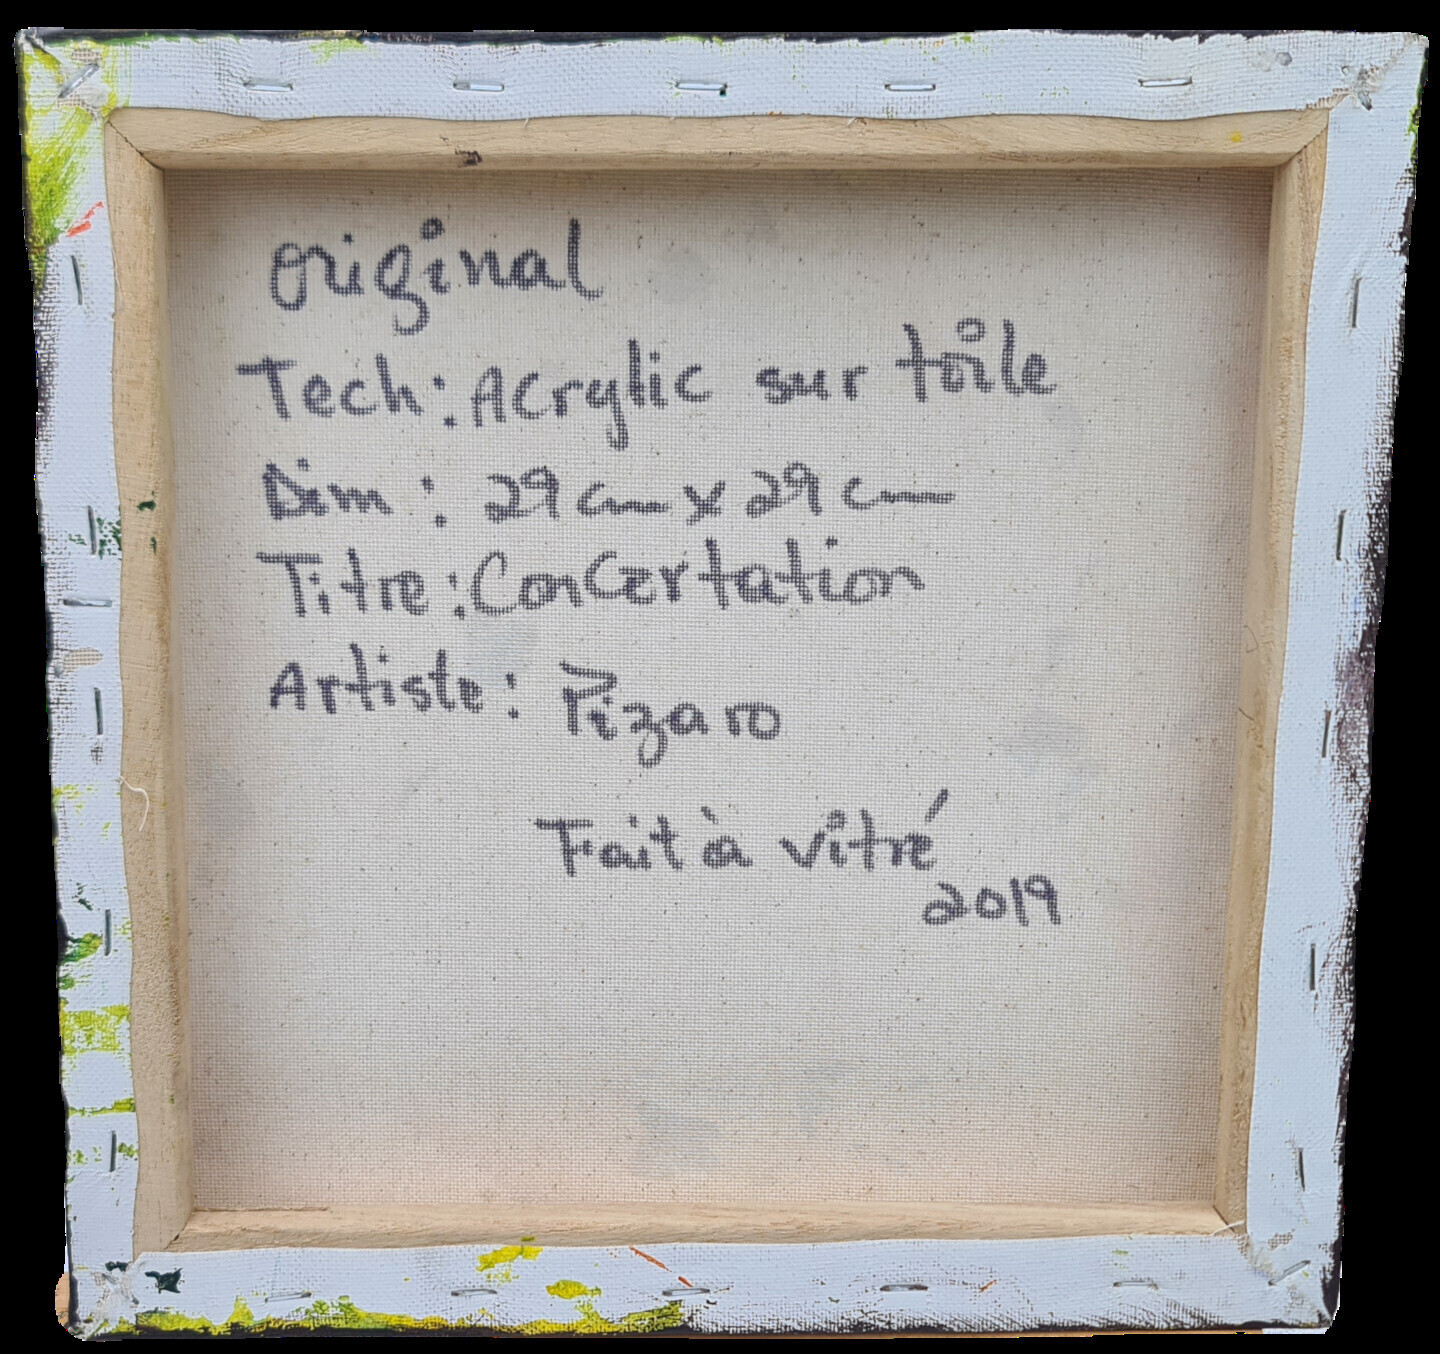 original
Tech: Acrylic sur toile
Dim: 29 cm x 29 cm
Titre: Concertation
Artiste: Pizaro
Fait à vitré
2019